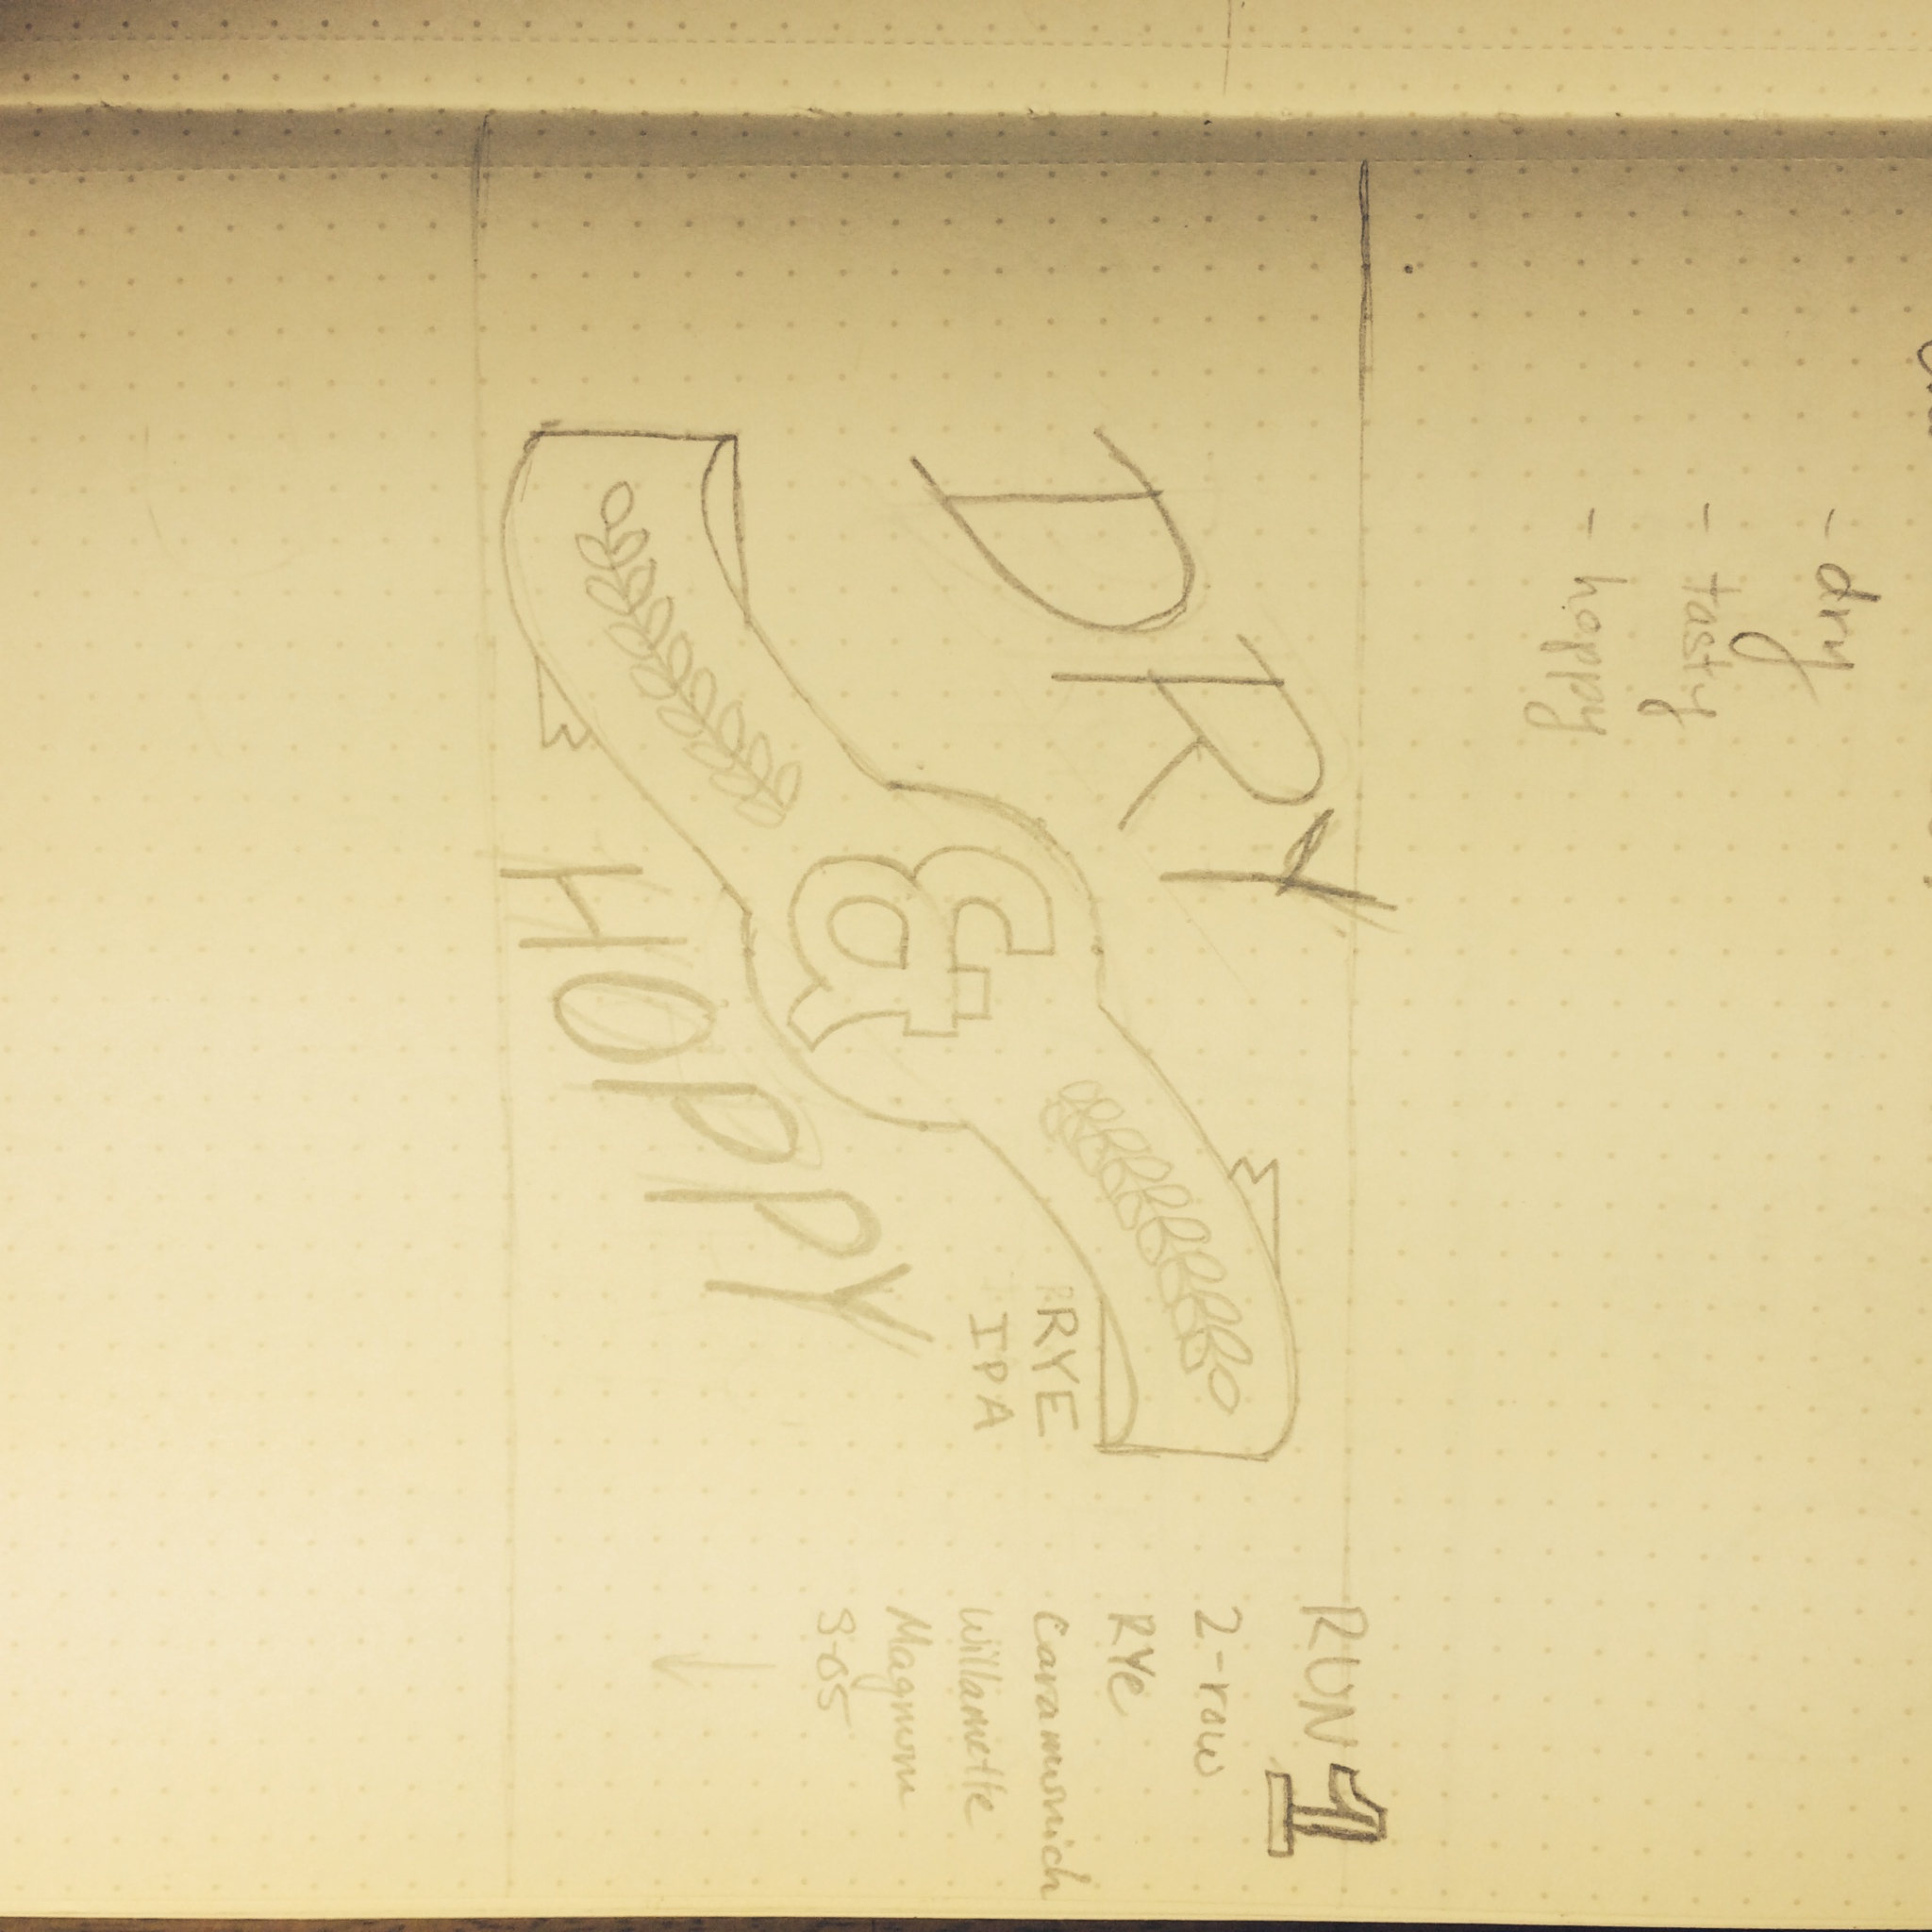 - dry
- tasty
- hoppy
DRY
&
HOPPY
RYE
IPA
RUN 1
2-row
RYe
Caramunich
Willamette
Magnum
S-05